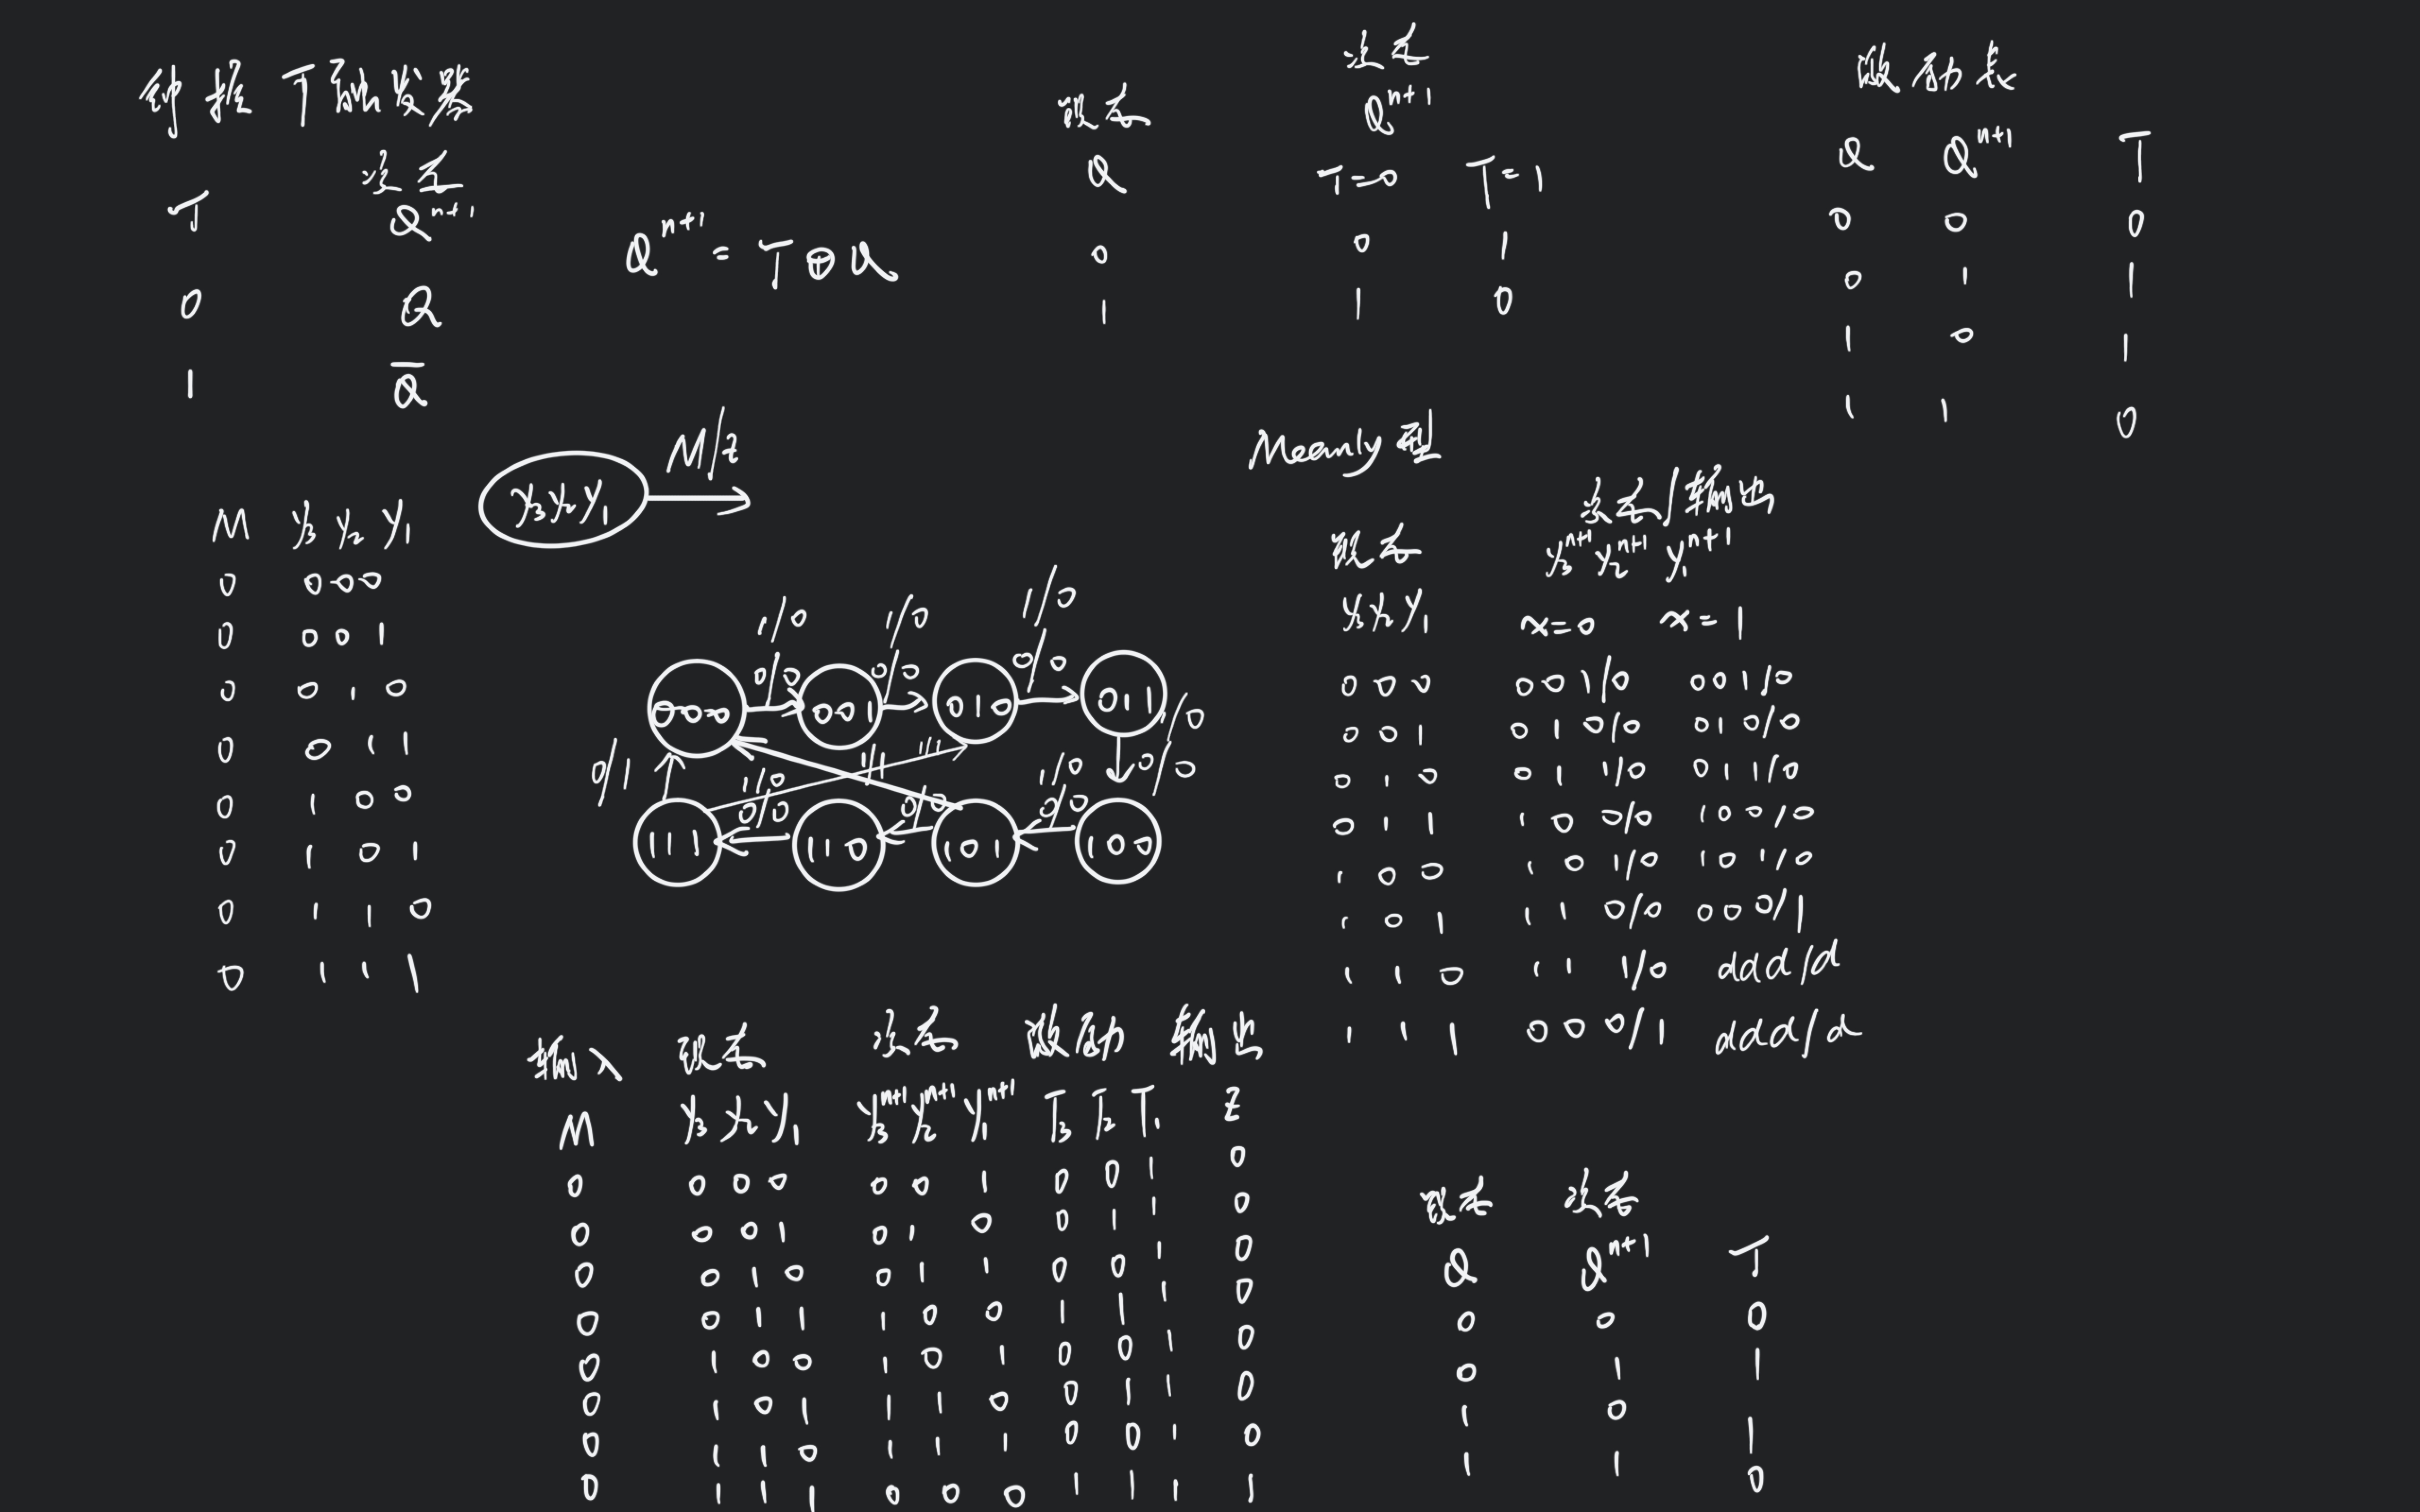 钟控T触发器
T 次态 Qⁿ⁺¹
0 Q
1 Q̅
Qⁿ⁺¹ = T⊕Q
现态 次态
Q Qⁿ⁺¹
T=0 T=1
0 0 1
1 1 0
激励表
Q Qⁿ⁺¹ T
0 0 0
0 1 1
1 0 1
1 1 0
M y₃ y₂ y₁
0 0 0 0
0 0 0 1
0 0 1 0
0 0 1 1
0 1 0 0
0 1 0 1
0 1 1 0
0 1 1 1
y₃y₂y₁ M/z
Meanly型
1/0 1/0 1/0
0/0 0/0 0/0
000 001 010 011
1/0
0/1 1/0 1/1 1/1 1/0 0/0
0/0 0/0 0/0
111 110 101 100
现态 次态/输出
y₃ⁿ⁺¹ y₂ⁿ⁺¹ y₁ⁿ⁺¹
y₃y₂y₁ x=0 x=1
000 001/0 001/0
001 010/0 010/0
010 011/0 011/0
011 100/0 100/0
100 101/0 101/0
101 110/0 000/1
110 111/0 ddd/d
111 000/1 ddd/d
输入 现态 次态 激励 输出
M y₃ y₂ y₁ y₃ⁿ⁺¹ y₂ⁿ⁺¹ y₁ⁿ⁺¹ T₃ T₂ T₁ Z
0 0 0 0 0 0 1 0 0 1 0
0 0 0 1 0 1 0 0 1 1 0
0 0 1 0 0 1 1 0 0 1 0
0 0 1 1 1 0 0 1 1 1 0
0 1 0 0 1 0 1 0 0 1 0
0 1 0 1 1 1 0 0 1 1 0
0 1 1 0 1 1 1 0 0 1 0
0 1 1 1 0 0 0 1 1 1 1
现态 次态
Q Qⁿ⁺¹ T
0 0 0
0 1 1
1 0 1
1 1 0